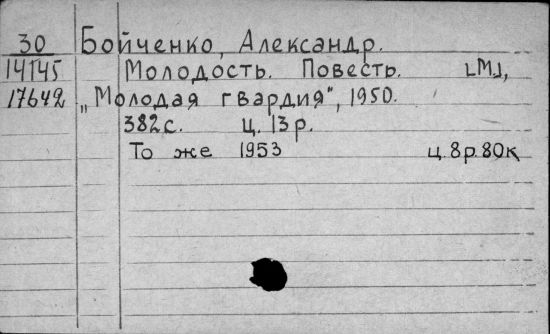 30 Бойченко, Александр.
14145 Молодость. Повесть. [М.],
17642 „Молодая гвардия", 1950.
382 с. ц. 13 р.
То же 1953 ц. 8 р. 80 к